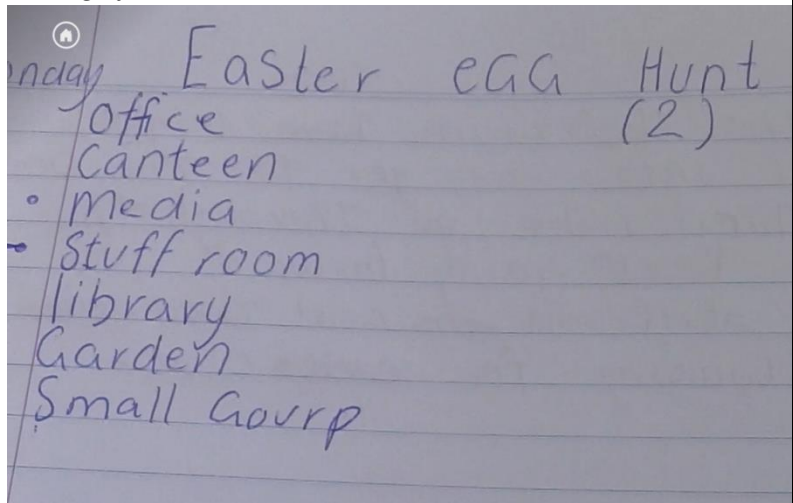 Easter egg Hunt
office (2)
Canteen
media
Stuff room
library
Garden
Small Gourp